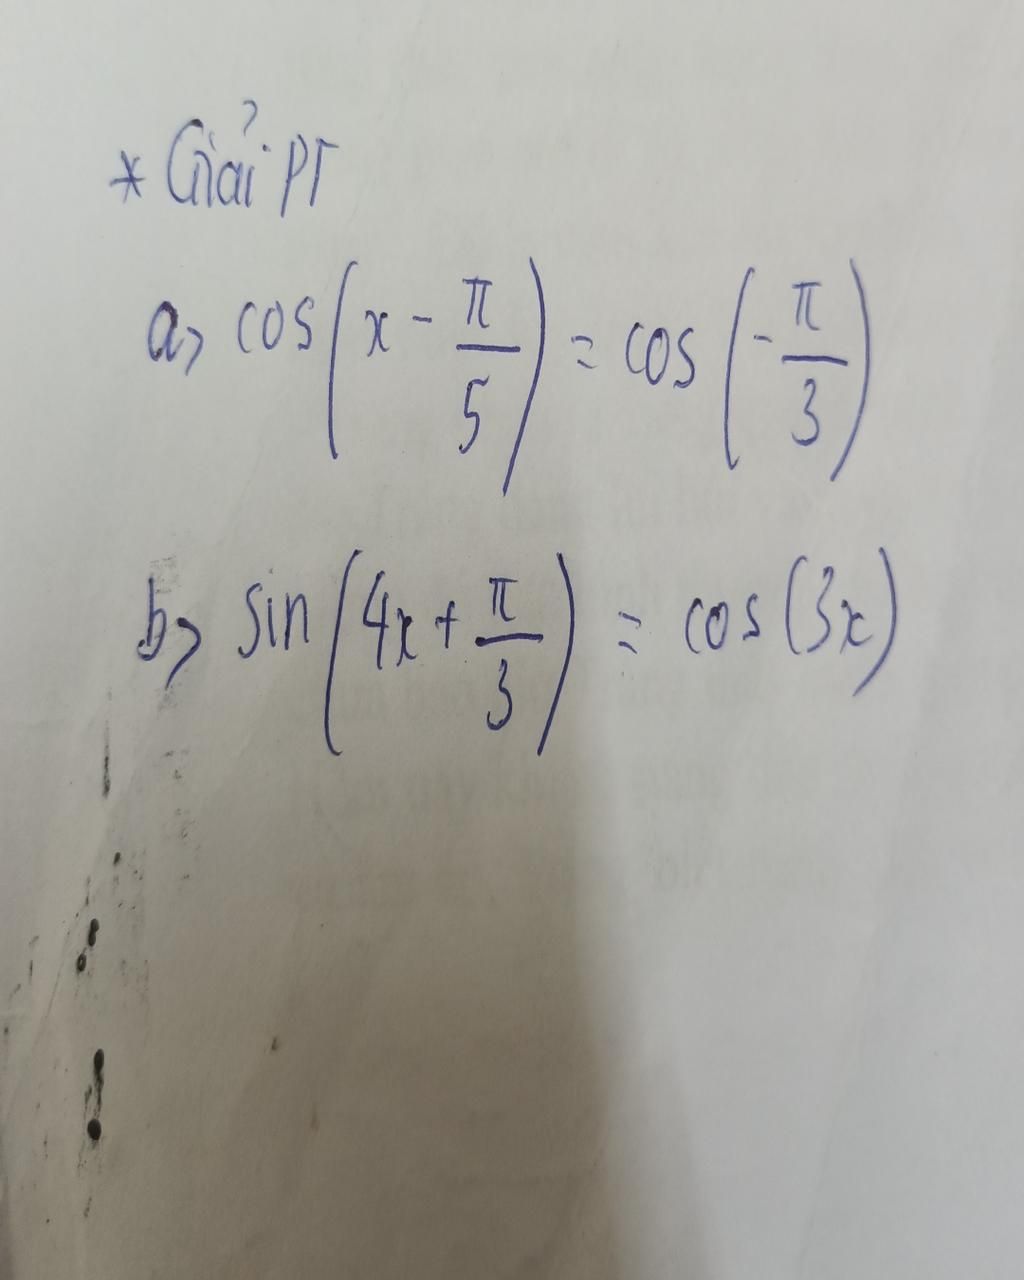 * Giải PT
a, cos(x - π/5) = cos(-π/3)
b, sin(4x + π/3) = cos(3x)